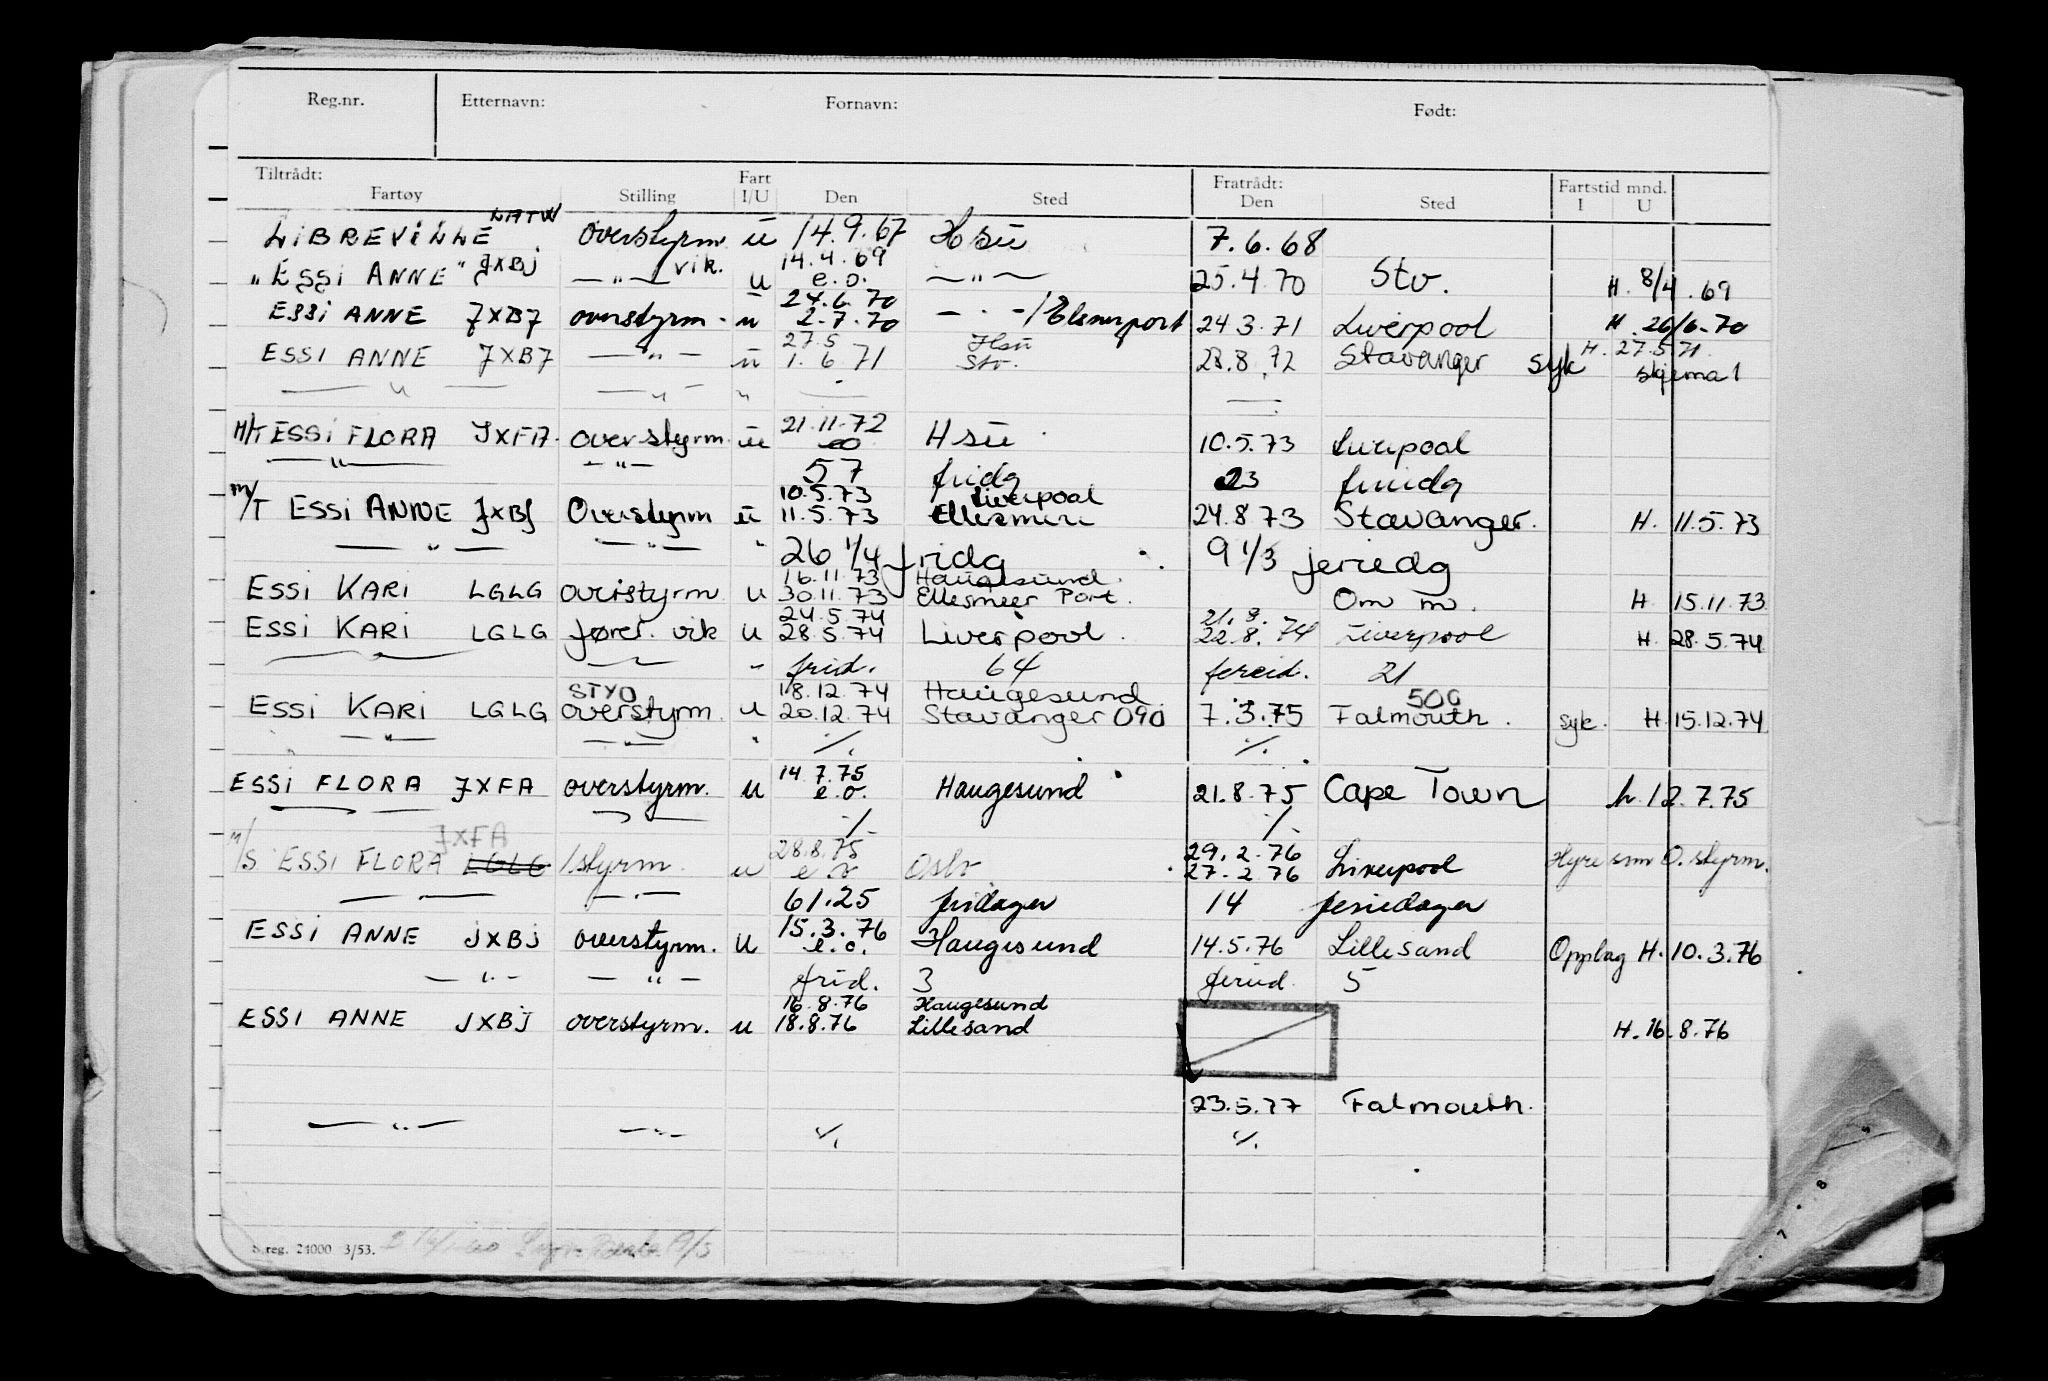 Reg.nr. Etternavn: Fornavn: Født:
Tiltrådt: Fart Fratrådt: Fartstid mnd.
Fartøy Stilling I/U Den Sted Den Sted I U
LATW
LIBREVILLE overstyrm. u 14.9.67 Hsu 7.6.68
vik. 14.4.69
"ESSI ANNE" JXBJ — " — u e.o. — " — 25.4.70 Stv. H. 8/4.69
24.6.70
ESSI ANNE JXBJ overstyrm. u 2.7.70 — " — / 24.3.71 Liverpool H. 26/6.70
27.5 Hsu H. 27.5.71
ESSI ANNE JXBJ — " — u 1.6.71 Stv. 28.8.72 Stavanger syk skjema 1
— " — — " — "
21.11.72
M/T ESSI FLORA JXFA. overstyrm. u eo Hsu 10.5.73 Liverpool
— " — — " — 57 fridg 23 feriedg
10.5.73 Liverpool
M/T ESSI ANNE JXBJ Overstyrm u 11.5.73 Ellesmere 24.8.73 Stavanger. H. 11.5.73
— " — — " — " 26 1/4 fridg 9 1/3 feriedg
16.11.73 Haugesund.
ESSI KARI LGLG overstyrm u 30.11.73 Ellesmeer Port. Om m. H 15.11.73
24.5.74 21.8.
ESSI KARI LGLG fører. vik u 28.5.74 Liverpool. 22.8.74 Liverpool H 28.5.74
— " — — " — " frid. 64 fereid. 21
STYO 18.12.74 Haugesund 500
ESSI KARI LGLG overstyrm. u 20.12.74 Stavanger 090 7.3.75 Falmouth. syk. H. 15.12.74
— " — — " — " ./. ./.
14.7.75
ESSI FLORA JXFA overstyrm. u e.o. Haugesund 21.8.75 Cape Town h. 12.7.75
./. ./.
JXFA 28.8.75 29.2.76
M/S ESSI FLORA LGLG 1styrm. u e.o. Oslo 27.2.76 Liverpool Hyre som O.styrm.
— " — — " — 61.25 fridager 14 feriedager
15.3.76
ESSI ANNE JXBJ overstyrm. u e.o. Haugesund 14.5.76 Lillesand Opplag H. 10.3.76
— " — — " — frid. 3 feried. 5
16.8.76 Haugesund
ESSI ANNE JXBJ overstyrm. u 18.8.76 Lillesand H. 16.8.76
23.5.77 Falmouth.
— " — — " — ./. ./.
S.reg. 24000 3/53.